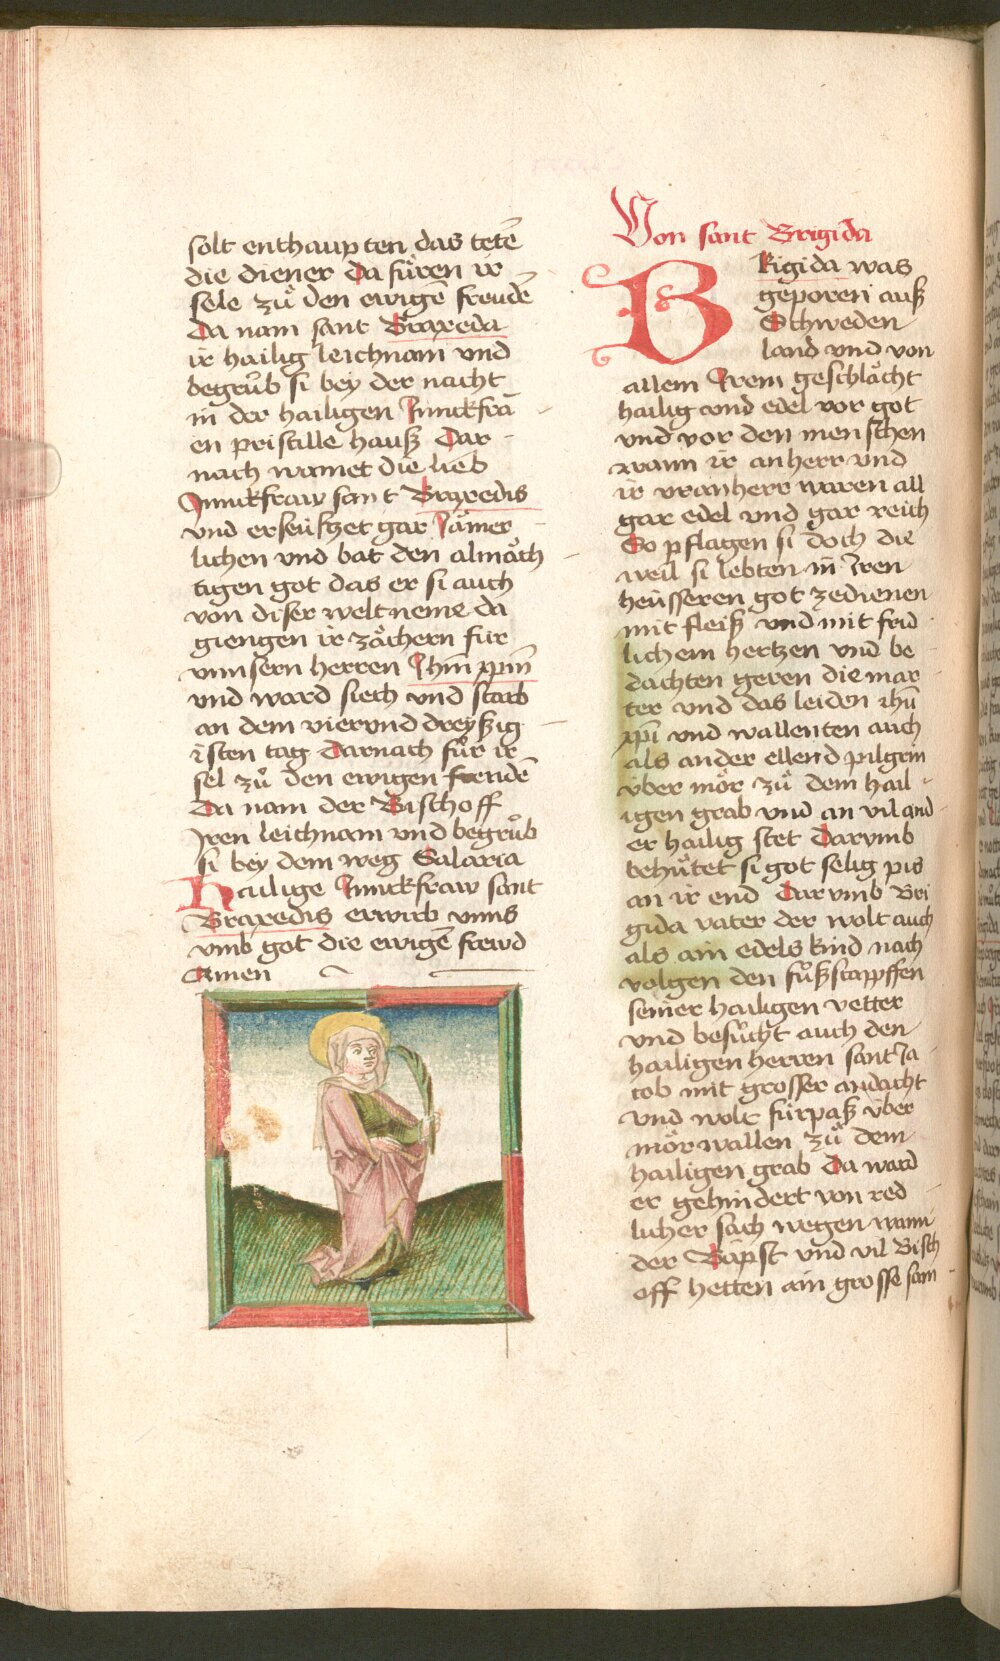 solt enthaupten das tetē
die diener da fuͦren ir
sele zuͦ den ewigē freudē
Da nam sant Braxeda
ir hailig leichnam und
begruͦb si bey der nacht
in der hailigen Junckfra
en pristille hauß Dar
nach wainet die lieb
Junckfraw sant Braxedis
und erseüftzet gar Jämer
lichen und bat den almäch
tigen got das er si auch
von diser welt neme da
giengen ir zächern für
unnsern herren Jhm̄ xp̄m
und ward siech und starb
an dem vierund dreyßig
isten tag Darnach fuͦr ir
sel zuͦ den ewigen freudē
Da nam der Bischoff
Iren leichnam und begruͦb
si bey dem weg Salaria
Hailige Junckfraw sant
Braxedis erwirb unns
umb got die ewigē frewd
Amen
Von sant Brigida
BRigida was
geporen auß
Schweden
land und von
allem Irem geschlächt
hailig und edel vor got
und vor den menschen
wann ir anherr und
ir uranherr waren all
gar edel und gar reich
So pflagen si doch die
weil si lebten in Iren
heüsseren got zedienen
mit fleiß und mit frid
lichem hertzen und be
dachten geren die mar
ter und das leiden ihū
xpī und wallenten auch
als ander ellend pilgrin
über mör zuͦ dem hail
igen grab und an vil and
er hailig stet Darumb
behütet si got selig pis
an ir end Darumb Bri
gida vater der wolt auch
als ain edels kind nach
volgen den fuͦßstapffen
seiner hailigen vetter
und besuͦcht auch den
hailigen herren sant Ja
cob mit grosser andacht
und wolt fürpaß über
mör wallen zuͦ dem
hailigen grab Da ward
er gehindert von red
licher sach wegen wann
der Bäpst und vil Bisch
off hetten ain grosse sam